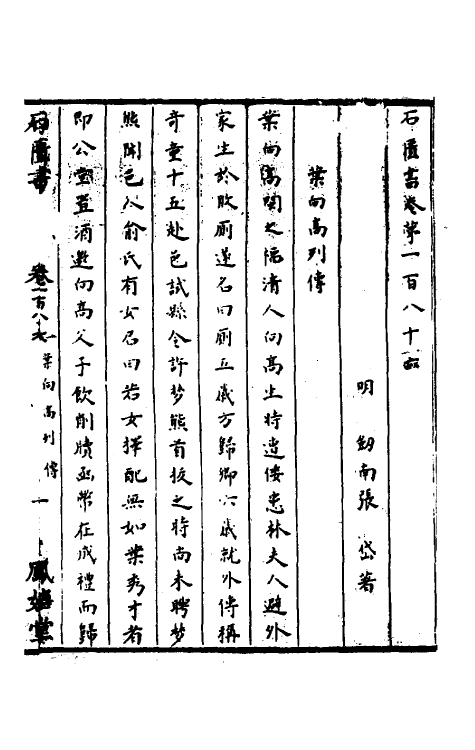 石匱書卷第一百八十四
明 劒南張 岱著
葉向高列傳
葉向高閩之福清人向高生時遭倭患林夫人避外
家生於敗廁遂名曰廁五歲方歸鄉六歲就外傅稱
奇童十五赴邑試縣令許夢熊首拔之時尚未聘夢
熊聞邑人俞氏有女召曰若女擇配無如葉秀才者
即公堂置酒邀向高父子飲削牘函幣在成禮而歸
石匱書 卷一百八十 葉向高列傳 一 鳳嬉堂